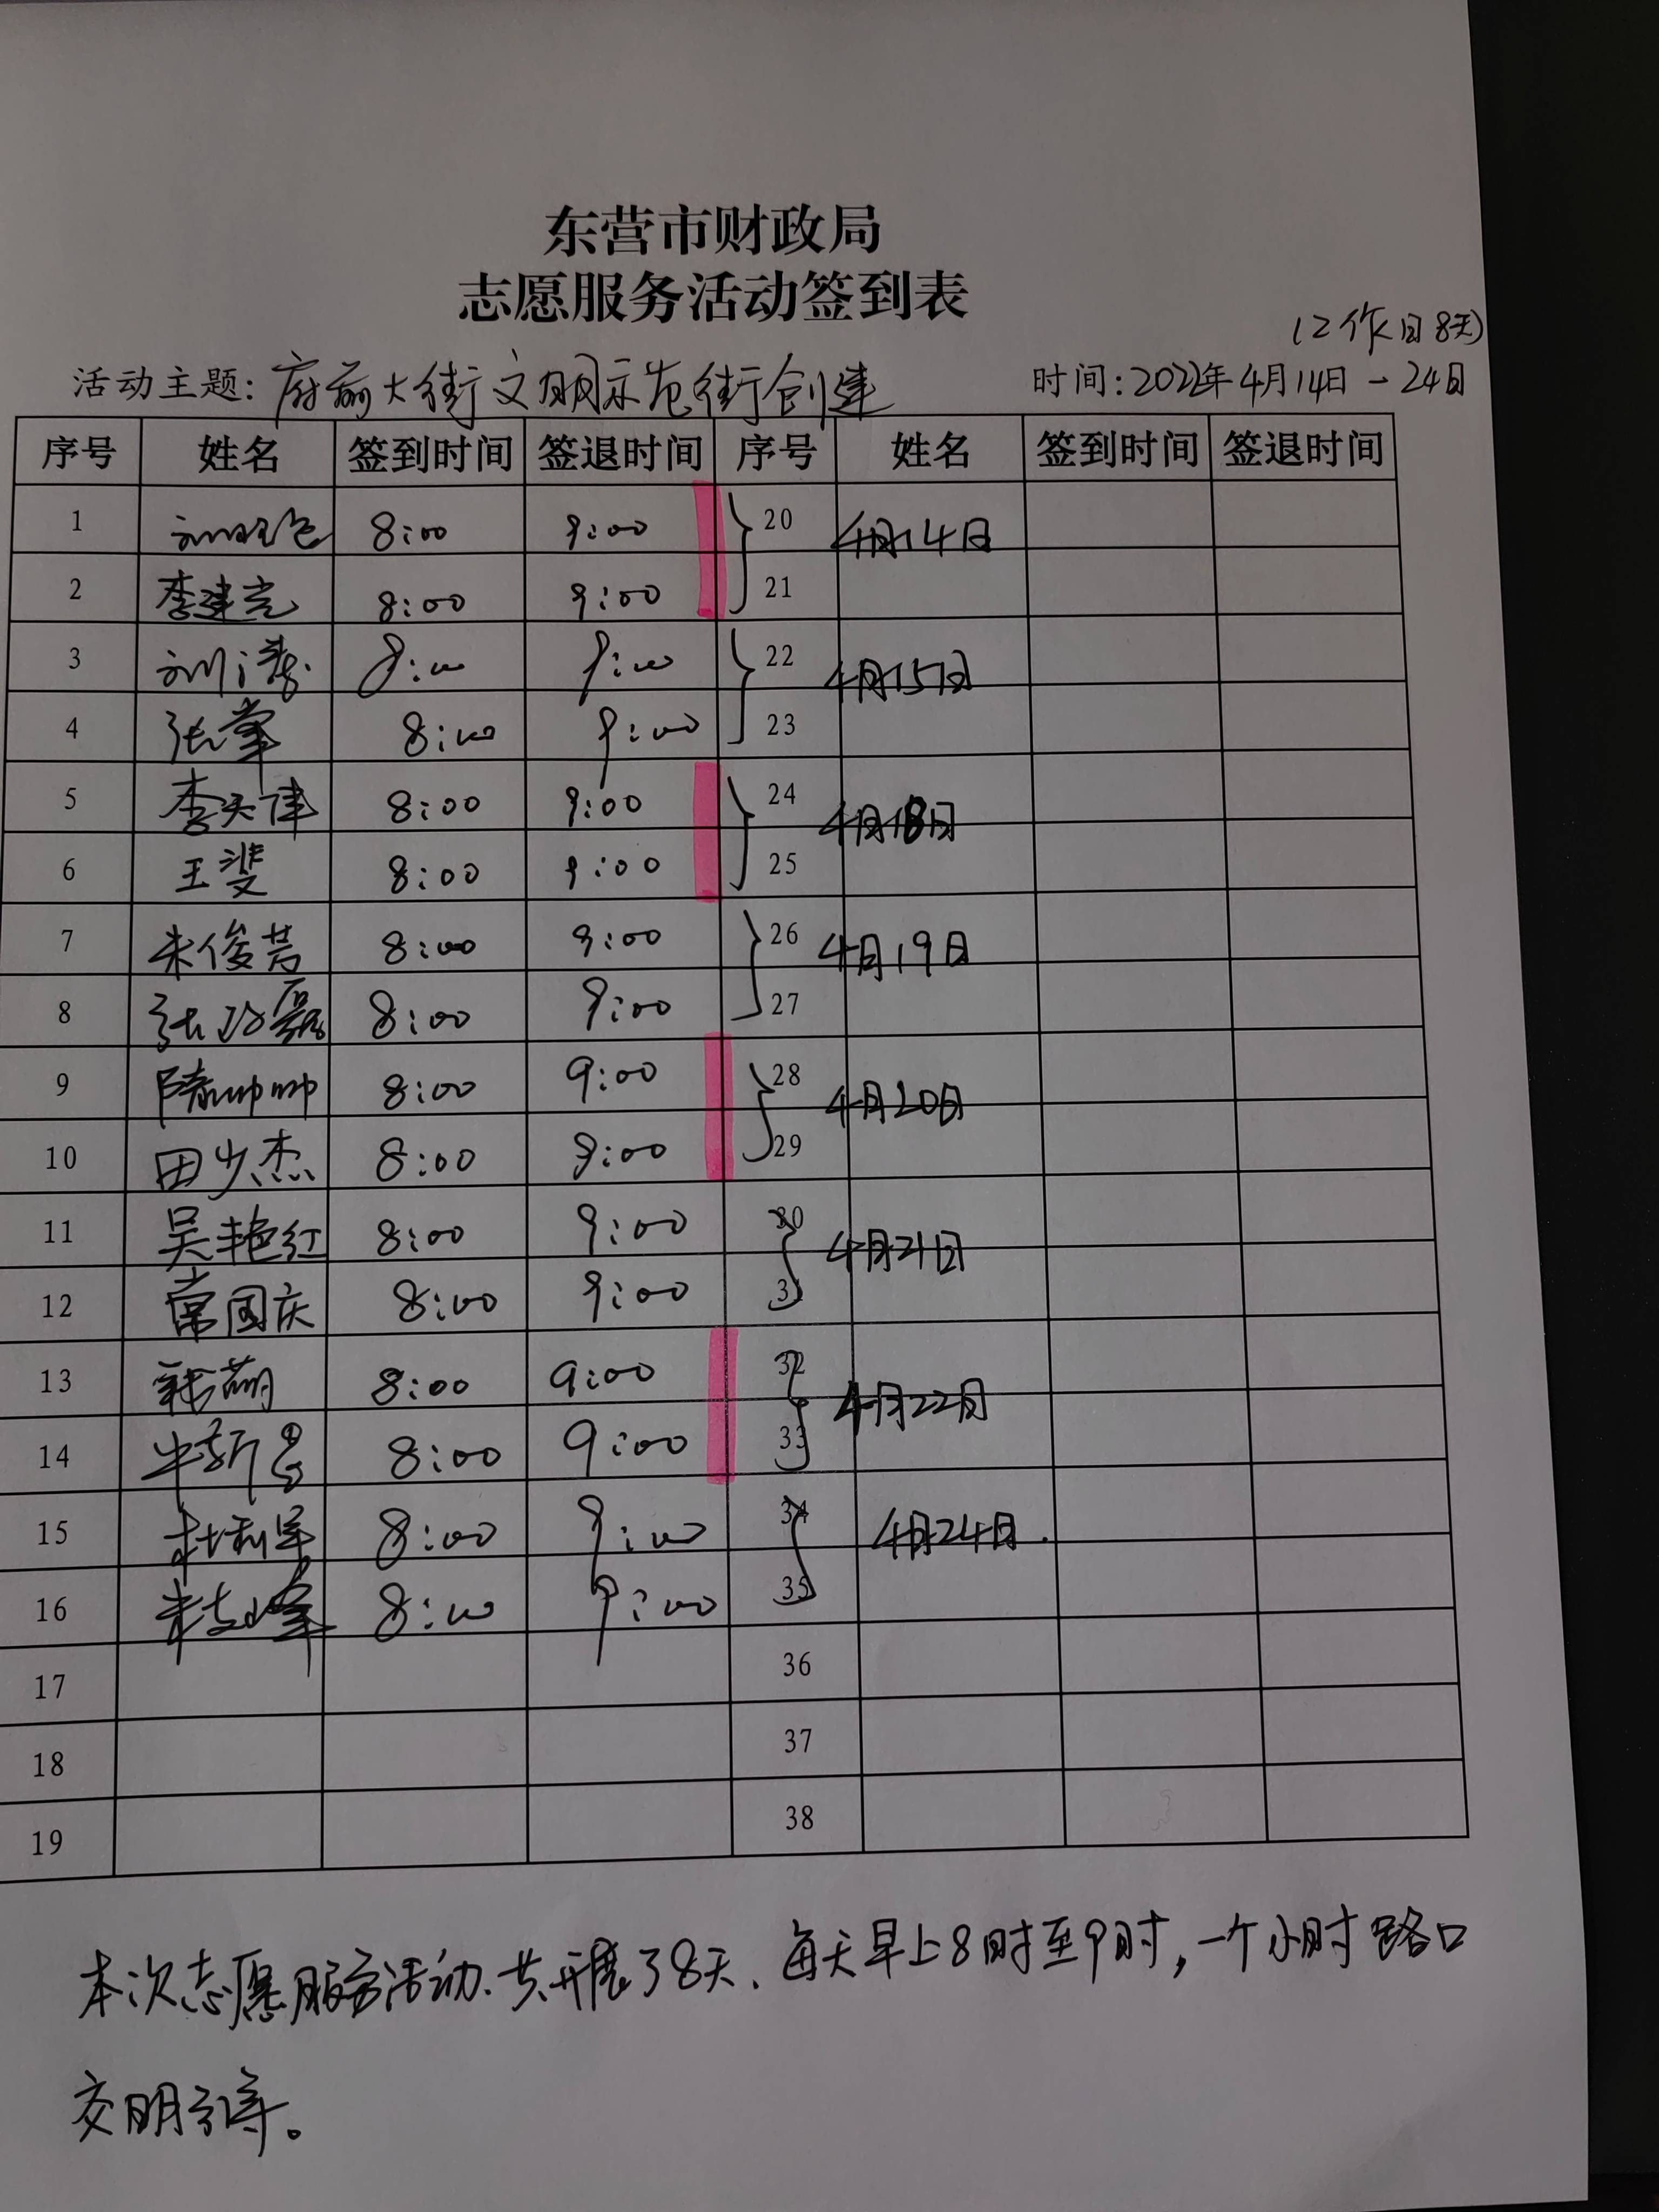 东营市财政局
志愿服务活动签到表
(工作日8天)
活动主题: 府前大街文明示范街创建 时间: 2022年4月14日-24日
序号 姓名 签到时间 签退时间 序号 姓名 签到时间 签退时间
1 8:00 9:00 20 4月14日
2 李建亮 8:00 9:00 21
3 8:00 9:00 22 4月15日
4 8:00 9:00 23
5 李天津 8:00 9:00 24 4月18日
6 王斐 8:00 9:00 25
7 朱俊芳 8:00 9:00 26 4月19日
8 8:00 9:00 27
9 隋帅帅 8:00 9:00 28 4月20日
10 田少杰 8:00 9:00 29
11 吴艳红 8:00 9:00 30 4月21日
12 常国庆 8:00 9:00 31
13 8:00 9:00 32 4月22日
14 8:00 9:00 33
15 杜利军 8:00 9:00 34 4月24日.
16 8:00 9:00 35
17 36
18 37
19 38
本次志愿服务活动、共开展了8天、每天早上8时至9时，一个小时路口
文明引导。